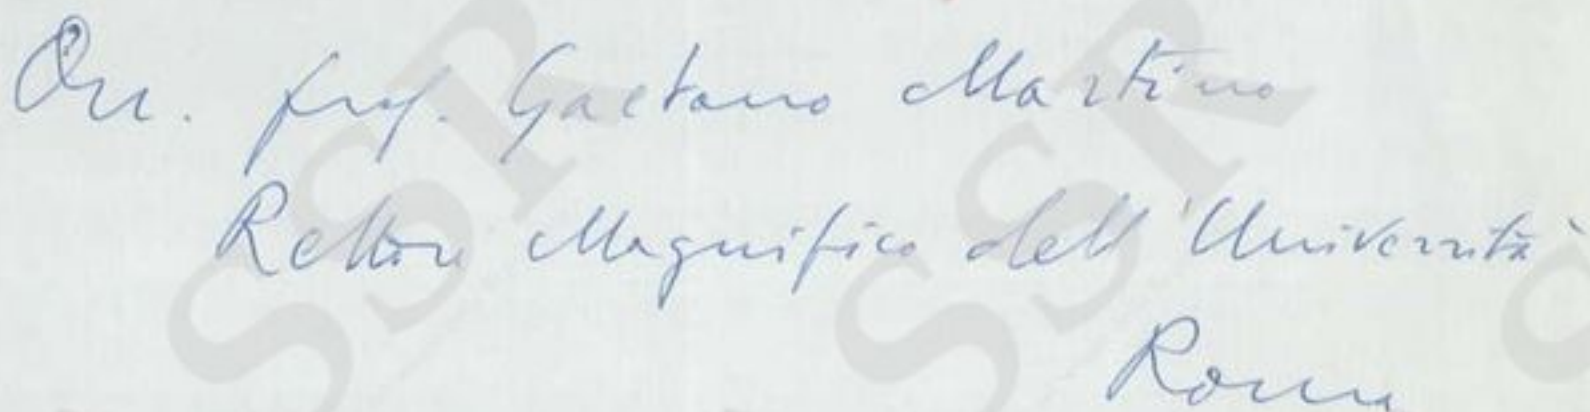 On. prof. Gaetano Martino
Rettore Magnifico dell'Università
Roma